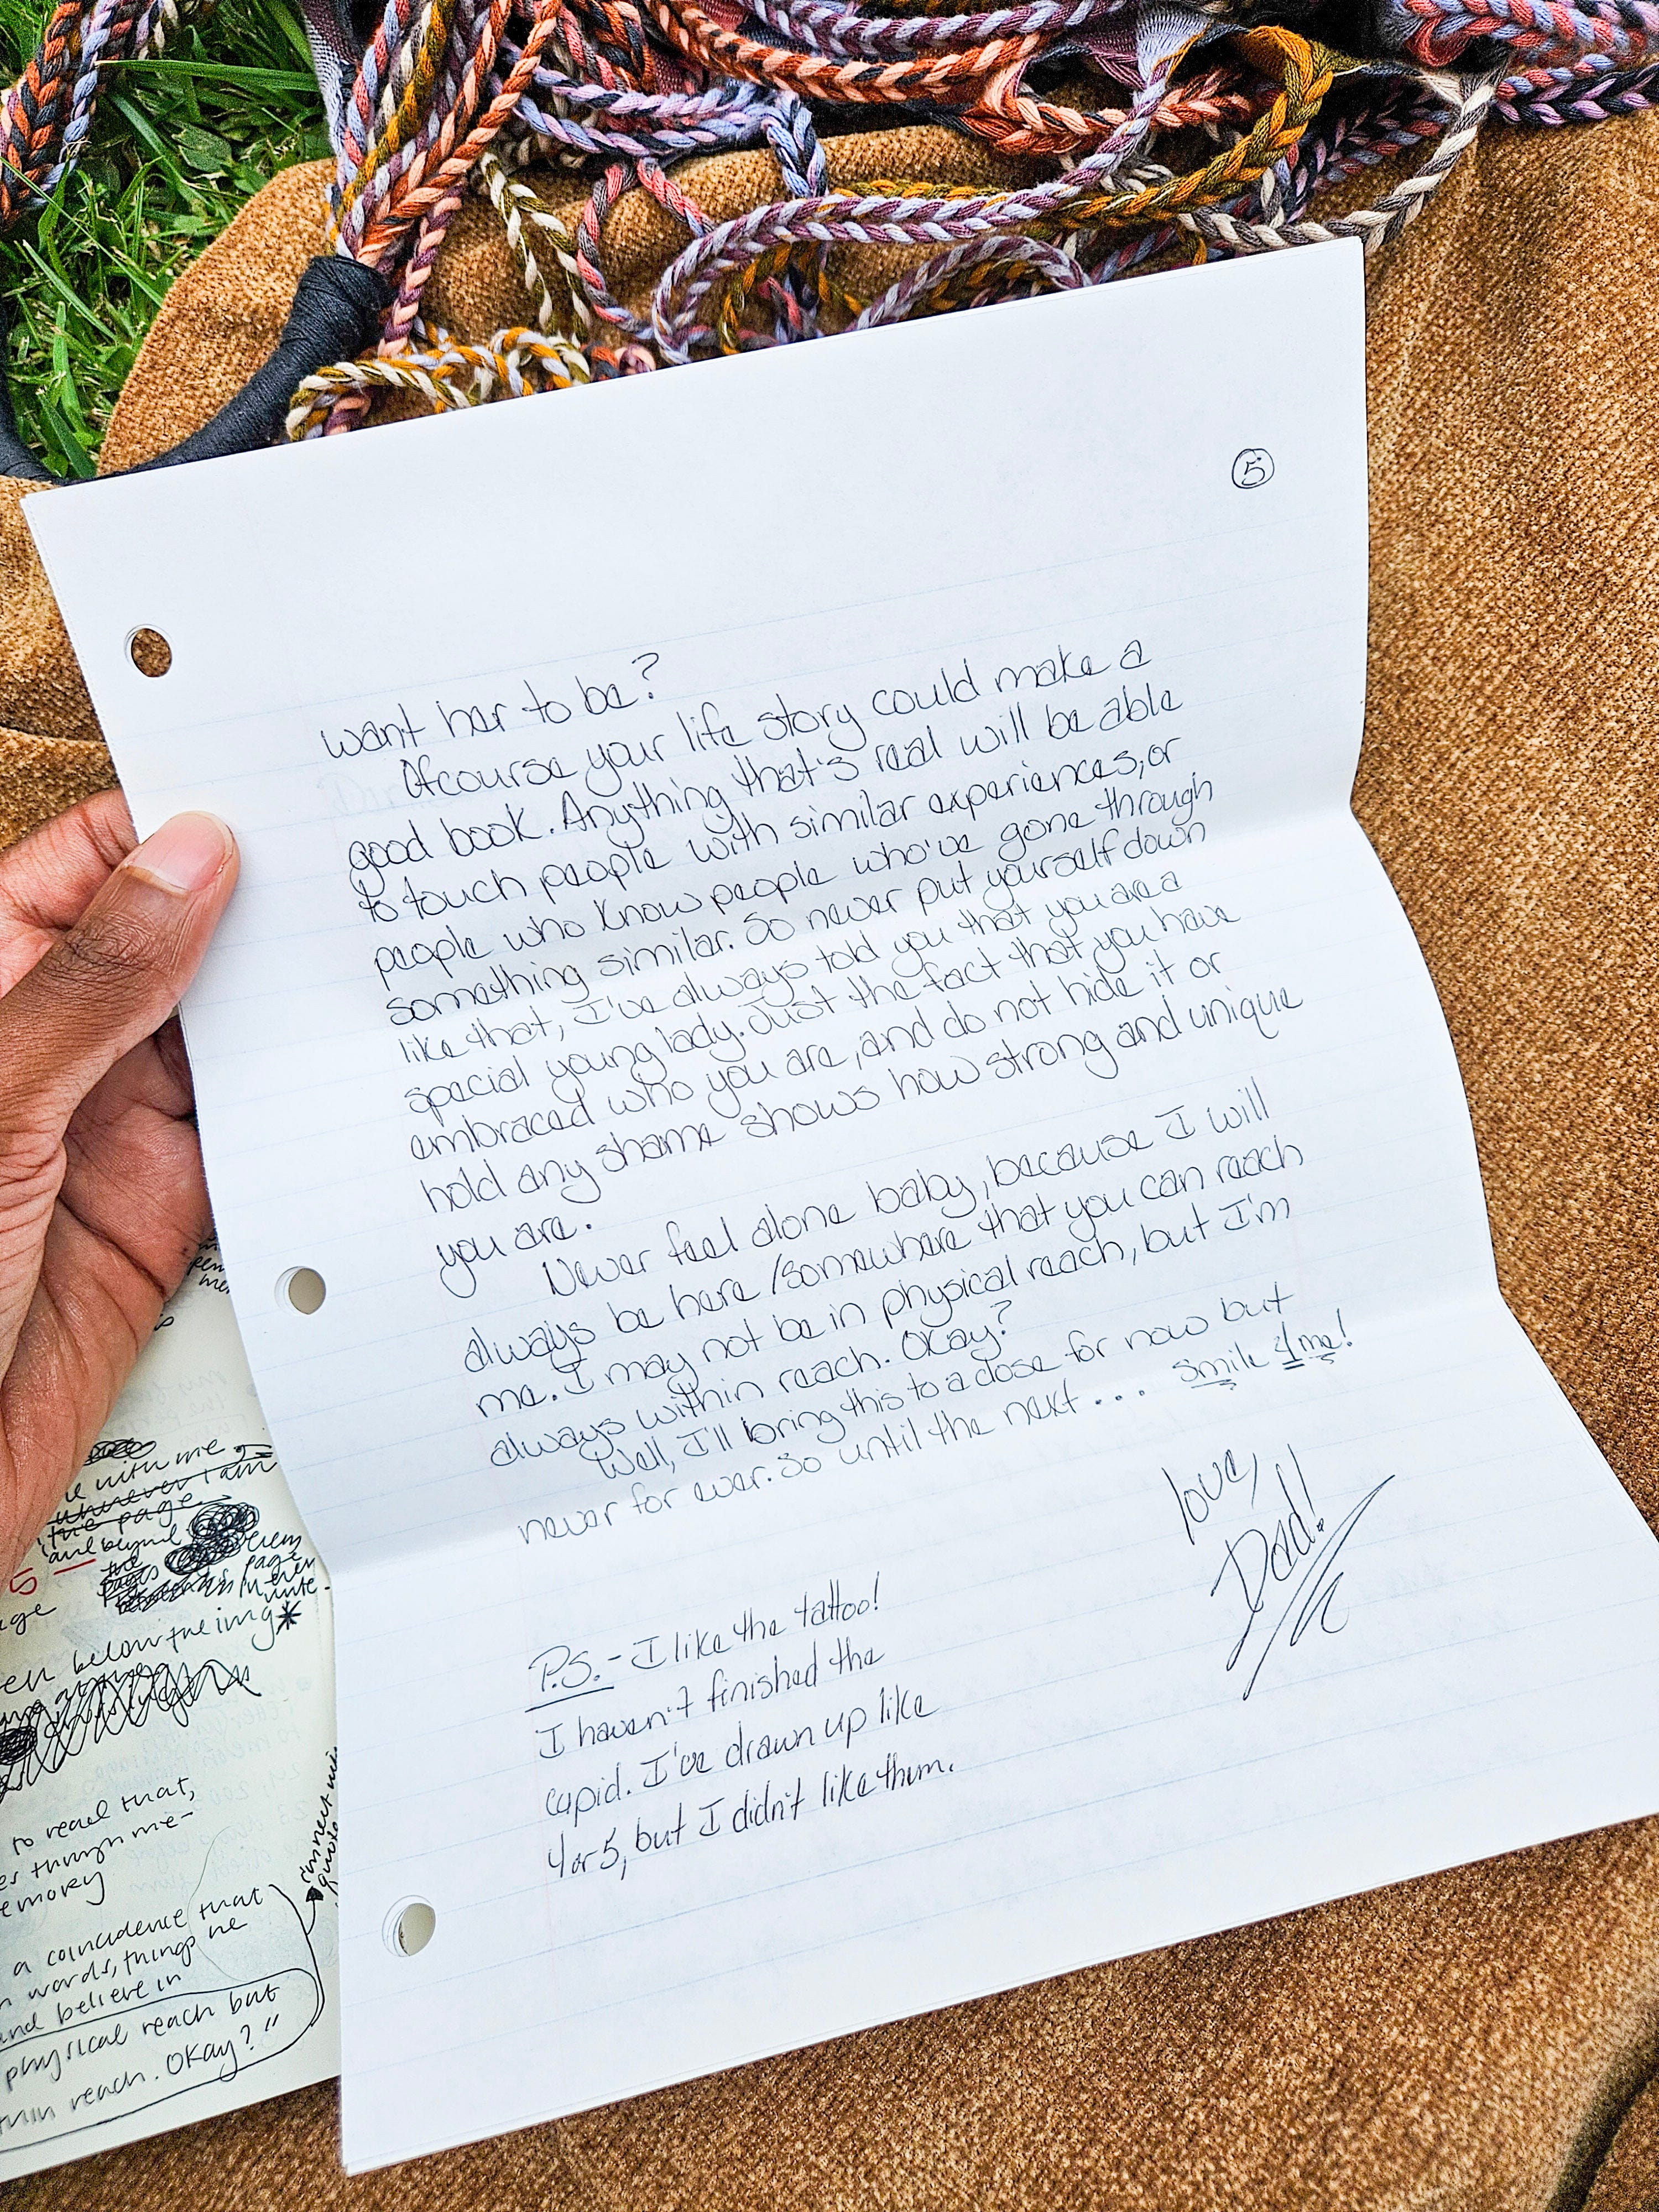 5
want her to be?
Ofcourse your life story could make a
good book. Anything that's real will be able
to touch people with similar experiences, or
people who know people who've gone through
something similar. So never put yourself down
like that, I've always told you that you are a
special young lady. Just the fact that you have
embraced who you are, and do not hide it or
hold any shame shows how strong and unique
you are.
Never feel alone baby, because I will
always be here/somewhere that you can reach
me. I may not be in physical reach, but I'm
always within reach. Okay?
Well, I'll bring this to a close for now but
never for ever. So until the next... smile 4 me!
Love,
Dad!
P.S. - I like the tattoo!
I haven't finished the
cupid. I've drawn up like
4 or 5, but I didn't like them.
with me
wherever I am
the page
and beyond
the
pages
5
below the img*
to read that,
a coincidence that
words, things he
and believe in
physical reach but
reach. Okay?"